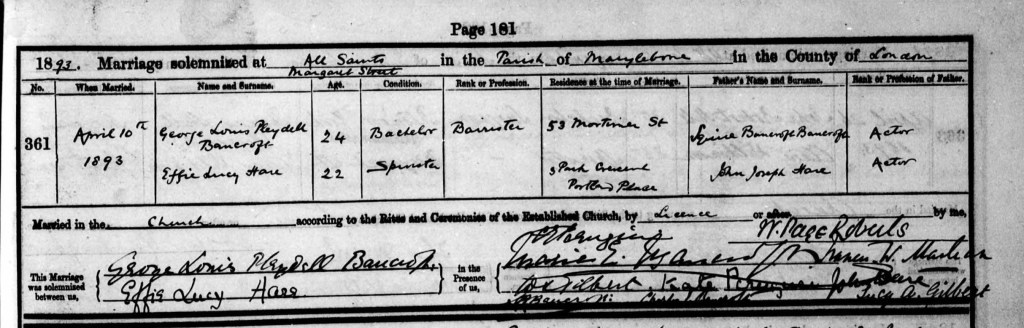 Page 181
1893. Marriage solemnized at All Saints Margaret Street in the Parish of Marylebone in the County of London
No. When Married. Name and Surname. Age. Condition. Rank or Profession. Residence at the time of Marriage. Father's Name and Surname. Rank or Profession of Father.
361 April 10th 1893 George Louis Pleydell Bancroft 24 Bachelor Barrister 53 Mortimer St Squire Bancroft Bancroft Actor
Effie Lucy Hare 22 Spinster 3 Park Crescent Portland Place John Joseph Hare Actor
Married in the Church according to the Rites and Ceremonies of the Established Church, by Licence or after by me,
W. Page Roberts
This Marriage was solemnized between us,
George Louis Pleydell Bancroft
Effie Lucy Hare
in the Presence of us,
Gilbert Kate John Hare
Lucy A. Gilbert